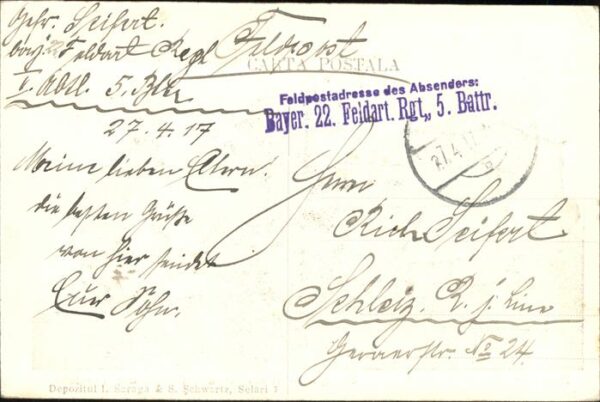 Gefr. Seifert.
bay. 22 Feldart Regt Feldpost
I. Abtl. 5. Bttr
CARTA POSTALA
Feldpostadresse des Absenders:
Bayer. 22. Feldart. Rgt., 5. Battr.
27.4.17
27.4.17
Meine lieben Eltern.
die besten Grüße
von hier sendet
Euer Sohn.
Herrn
Rich Seifert
Schleiz. R. j. Linie
Geraerstr. No 24.
Depozitul I. Saraga & S. Schwartz, Selari 7